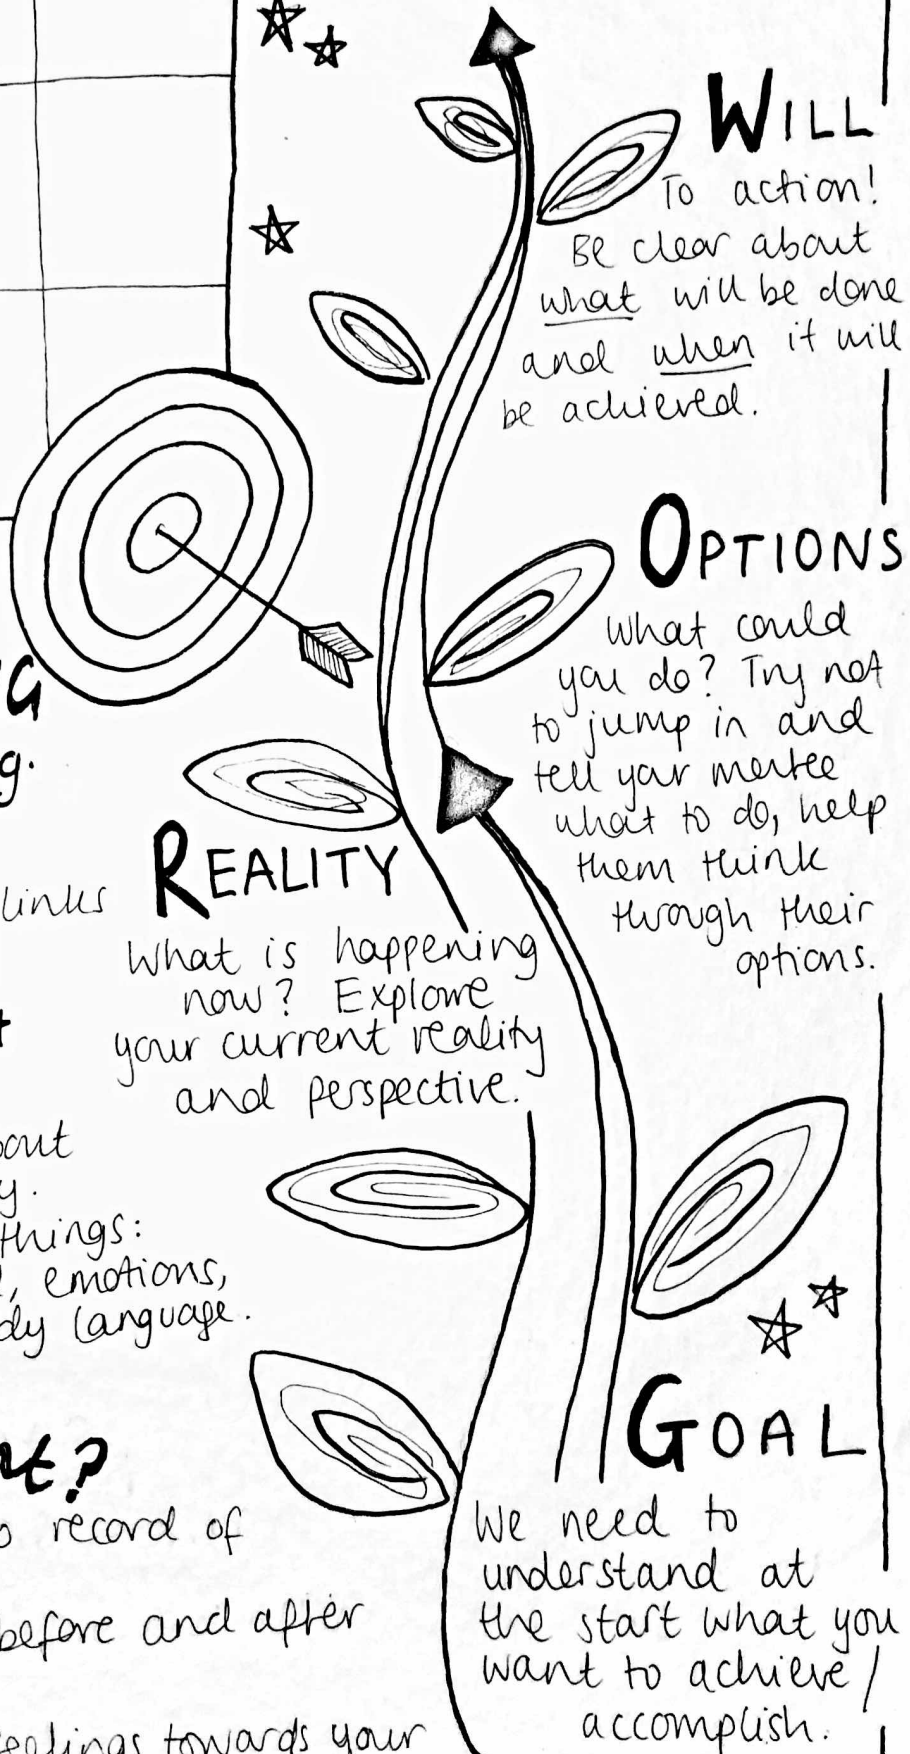 WILL
To action!
Be clear about
what will be done
and when it will
be achieved.
OPTIONS
What could
you do? Try not
to jump in and
tell your mentee
what to do, help
them think
through their
options.
G
g.
REALITY
links
What is happening
now? Explore
your current reality
and perspective.
out
y.
things:
, emotions,
dy language.
t?
GOAL
record of
before and after
eelings towards your
We need to
understand at
the start what you
want to achieve /
accomplish.